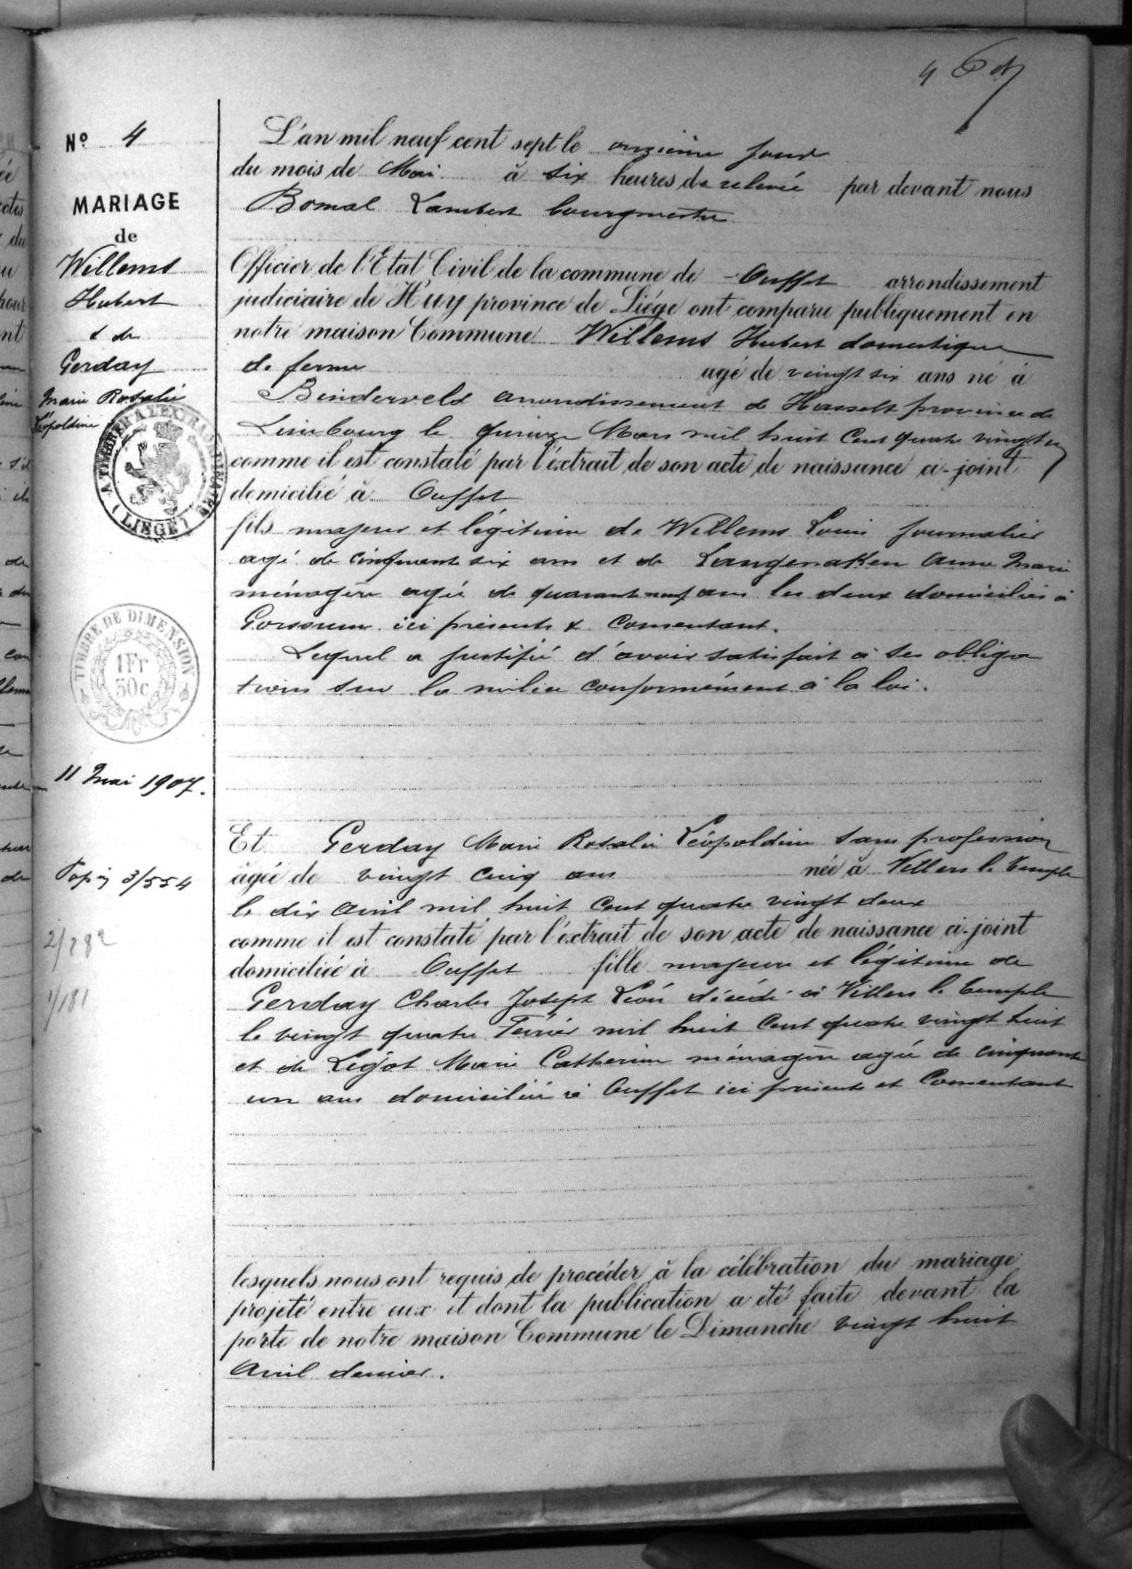 4
Nº 4
MARIAGE
de
Willems
Hubert
& de
Gerday
Marie Rosalie
Léopoldine
A TIMBRER A L'EXTRAORDINAIRE
(LIEGE)
TIMBRE DE DIMENSION
1Fr
50c
11 Mai 1907.
3/554
2/282
1/181
L'an mil neuf cent sept le onzième jour
du mois de Mai à six heures de relevée par devant nous
Bomal Lambert bourgmestre
Officier de l'Etat Civil de la commune de Ouffet arrondissement
judiciaire de Huy province de Liége ont comparu publiquement en
notre maison Commune Willems Hubert domestique
de ferme âgé de vingt six ans né à
Binderveld arrondissement de Hasselt province de
Limbourg le quinze Mars mil huit cent quatre vingt un
comme il est constaté par l'extrait de son acte de naissance ci-joint
domicilié à Ouffet
fils majeur et légitime de Willems Louis journalier
agé de cinquante six ans et de Langenaken Anne Marie
ménagère agée de quarante neuf ans les deux domiciliés à
Gorssum ici présents & consentant.
Lequel a justifié d'avoir satisfait à ses obliga
tions sur la milice conformément à la loi.
Et Gerday Marie Rosalie Léopoldine sans profession
âgée de vingt cinq ans née à Villers le Temple
le dix avril mil huit cent quatre vingt deux
comme il est constaté par l'extrait de son acte de naissance ci-joint
domiciliée à Ouffet fille majeure et légitime de
Gerday Charles Joseph Léon décédé à Villers le Temple
le vingt quatre Février mil huit cent quatre vingt huit
et de Légot Marie Catherine ménagère agée de cinquante
un ans domiciliée à Ouffet ici présente et consentant
lesquels nous ont requis de procéder à la célébration du mariage
projeté entre eux et dont la publication a été faite devant la
porte de notre maison Commune le Dimanche vingt huit
Avril dernier.